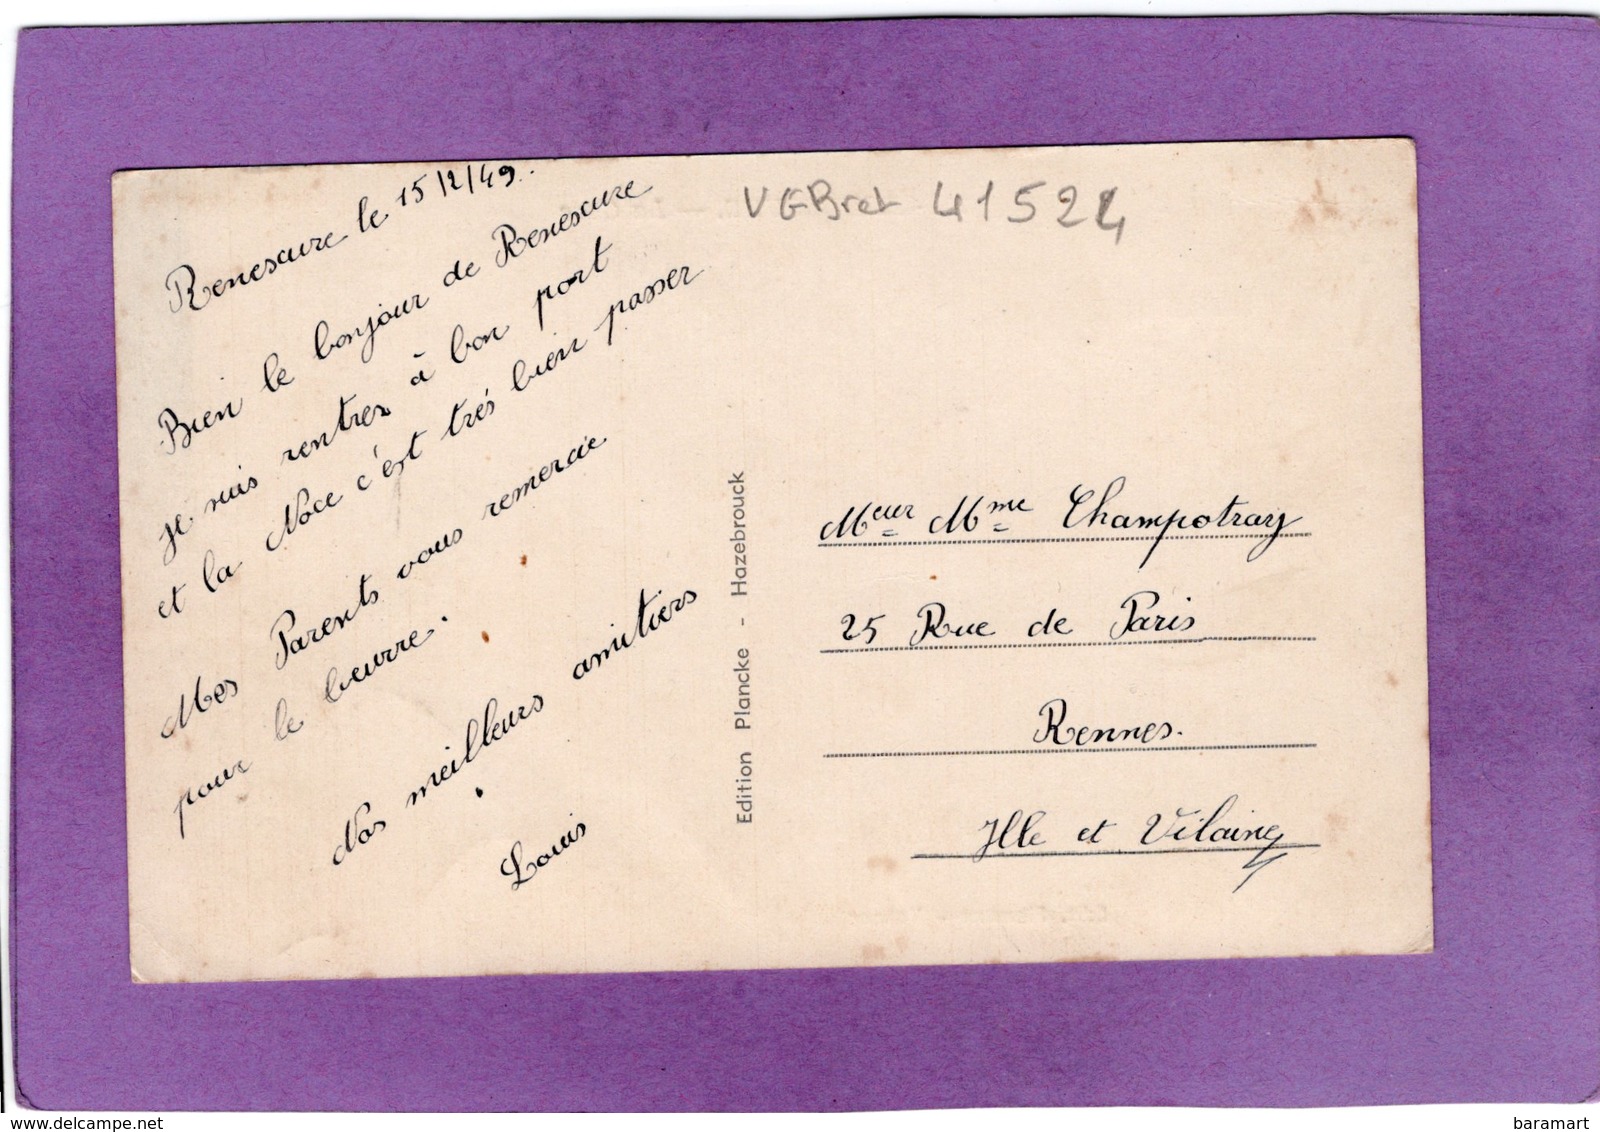 Renescure le 15/2/49.
Bien le bonjour de Renescure
je suis rentres à bon port
et la Noce c'est trés bien passer
Mes Parents vous remercie
pour le beurre.
Nos meilleurs amitiers
Louis
Edition Plancke - Hazebrouck
VGBret 41524
Meur Mme Champotray
25 Rue de Paris
Rennes.
Ille et Vilaine
www.delcampe.net
baramart